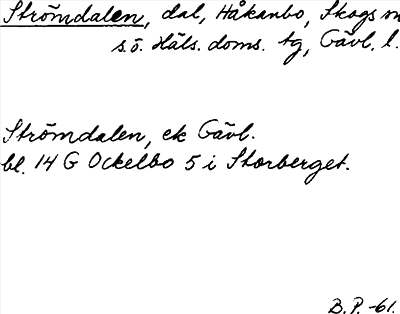 Strömdalen, dal, Håkanbo, Skogs
s.ö. Häls. doms. tg, Gävl. l.
Strömdalen, ek Gävl.
bl. 14 G Ockelbo 5 i Storberget.
B.P. -61.